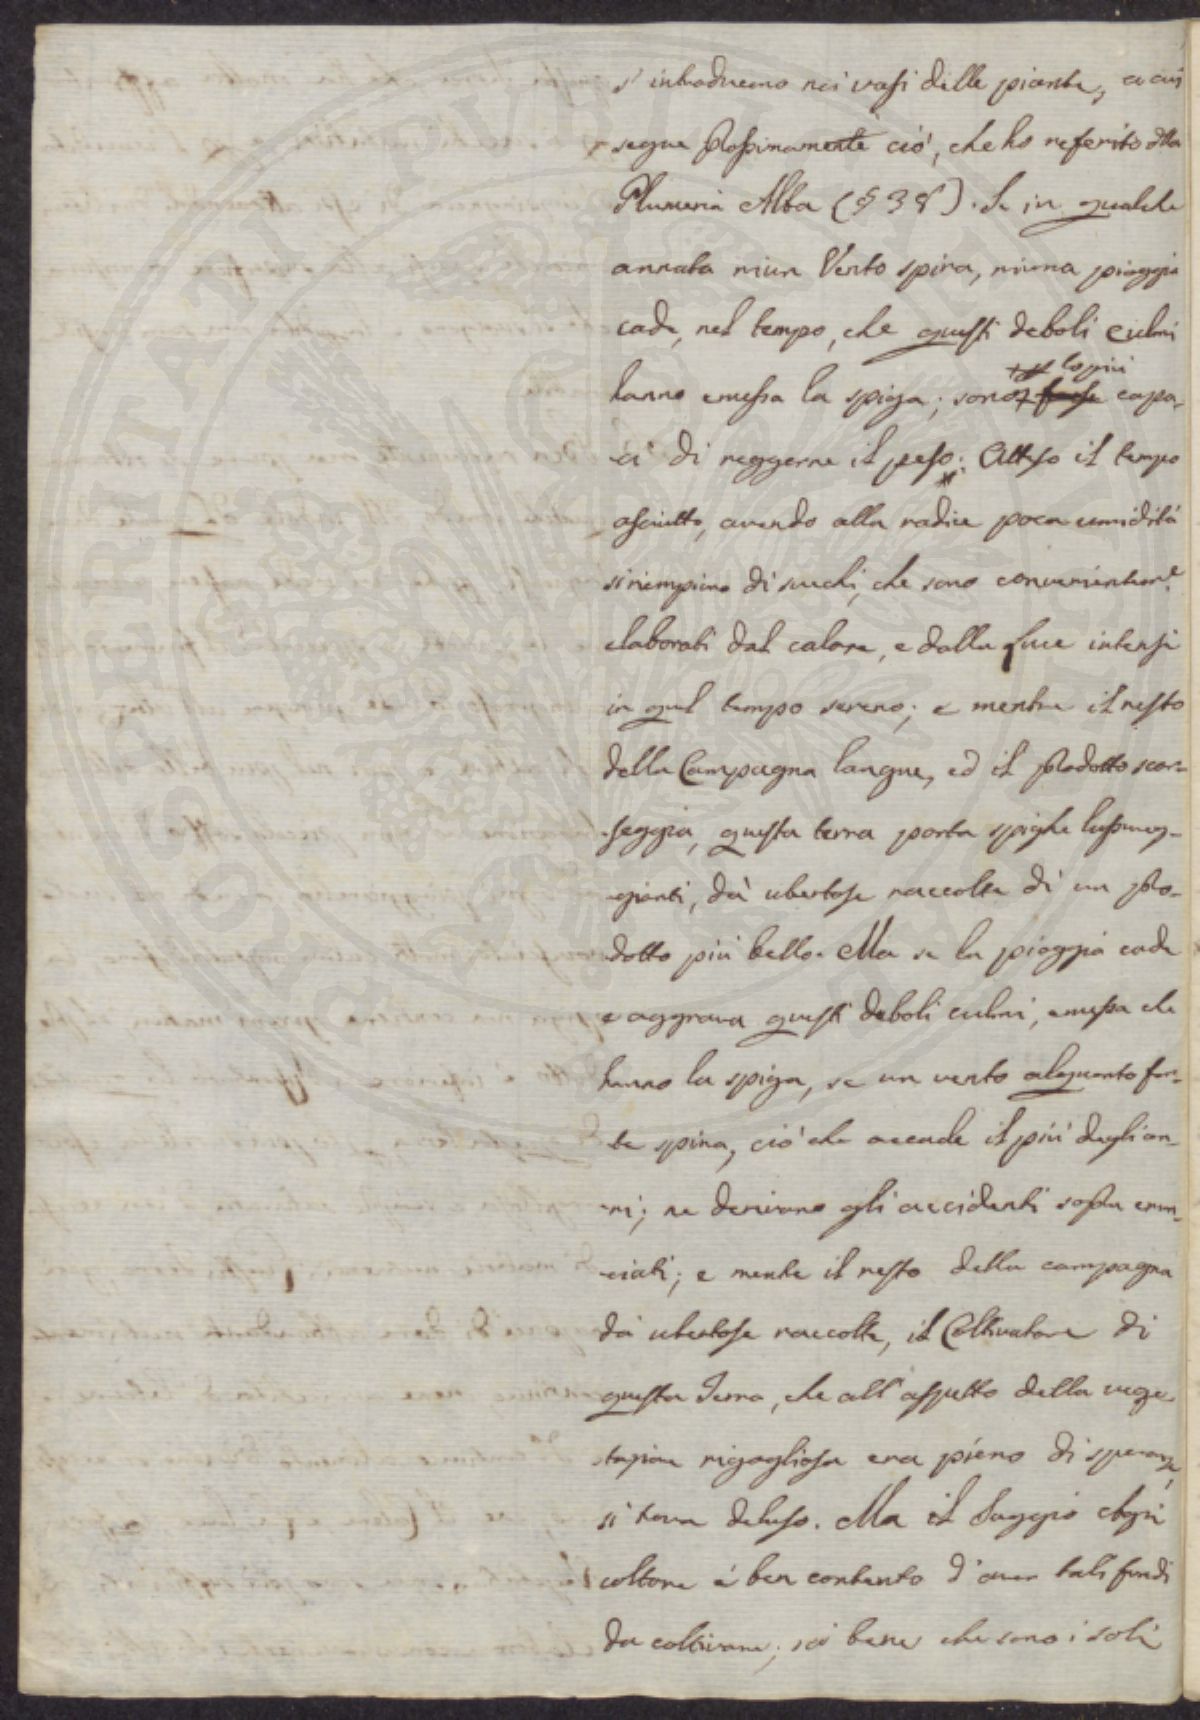 s'introducono nei vasi delle piante, a cui
segue prossimamente ciò, che ho referito dlla
Plumeria Alba (§ 38). Se in qualche
annata niun Vento spira, niuna pioggia
cade, nel tempo, che questi deboli Culmi
lo più
hanno emessa la spiga; sono capa-
ci di reggerne il peso: Atteso il tempo
asciutto, avendo alla radice poca umidità
si riempiono di succhi, che sono convenientem.e
elaborati dal calore, e dalla luce intensi
in quel tempo sereno; e mentre il resto
della Campagna langue, ed il Prodotto scar-
seggia, questa terra porta spighe lussureg-
gianti, dà ubertose raccolte di un Pro-
dotto più bello. Ma se la pioggia cade
e aggrava questi deboli culmi, emessa che
hanno la spiga, se un vento alquanto for-
te spira, ciò che accade il più degli an-
ni; ne derivano gli accidenti sopra enun-
ciati; e mentre il resto della campagna
dà ubertose raccolte, il Coltivatore di
questa Terra, che all'aspetto della vege
tazione rigogliosa era pieno di speranze,
si trova deluso. Ma il Saggio Agri
coltore è ben contento d'aver tali fondi
da coltivare; sà bene che sono i soli
PUBLICAE